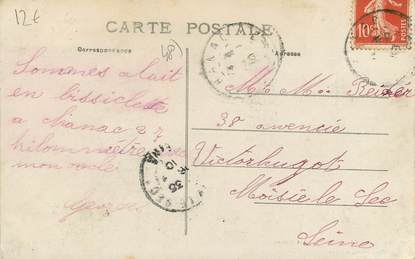 12€
CARTE POSTALE
Correspondance
48
Adresse
10
Sommes alait
en bissiclete
a Chanac a 7
kilommetre
mon oncle
Georges
Mr Mme
38 avencie
Victorhugot
Noisie le Sec
Seine